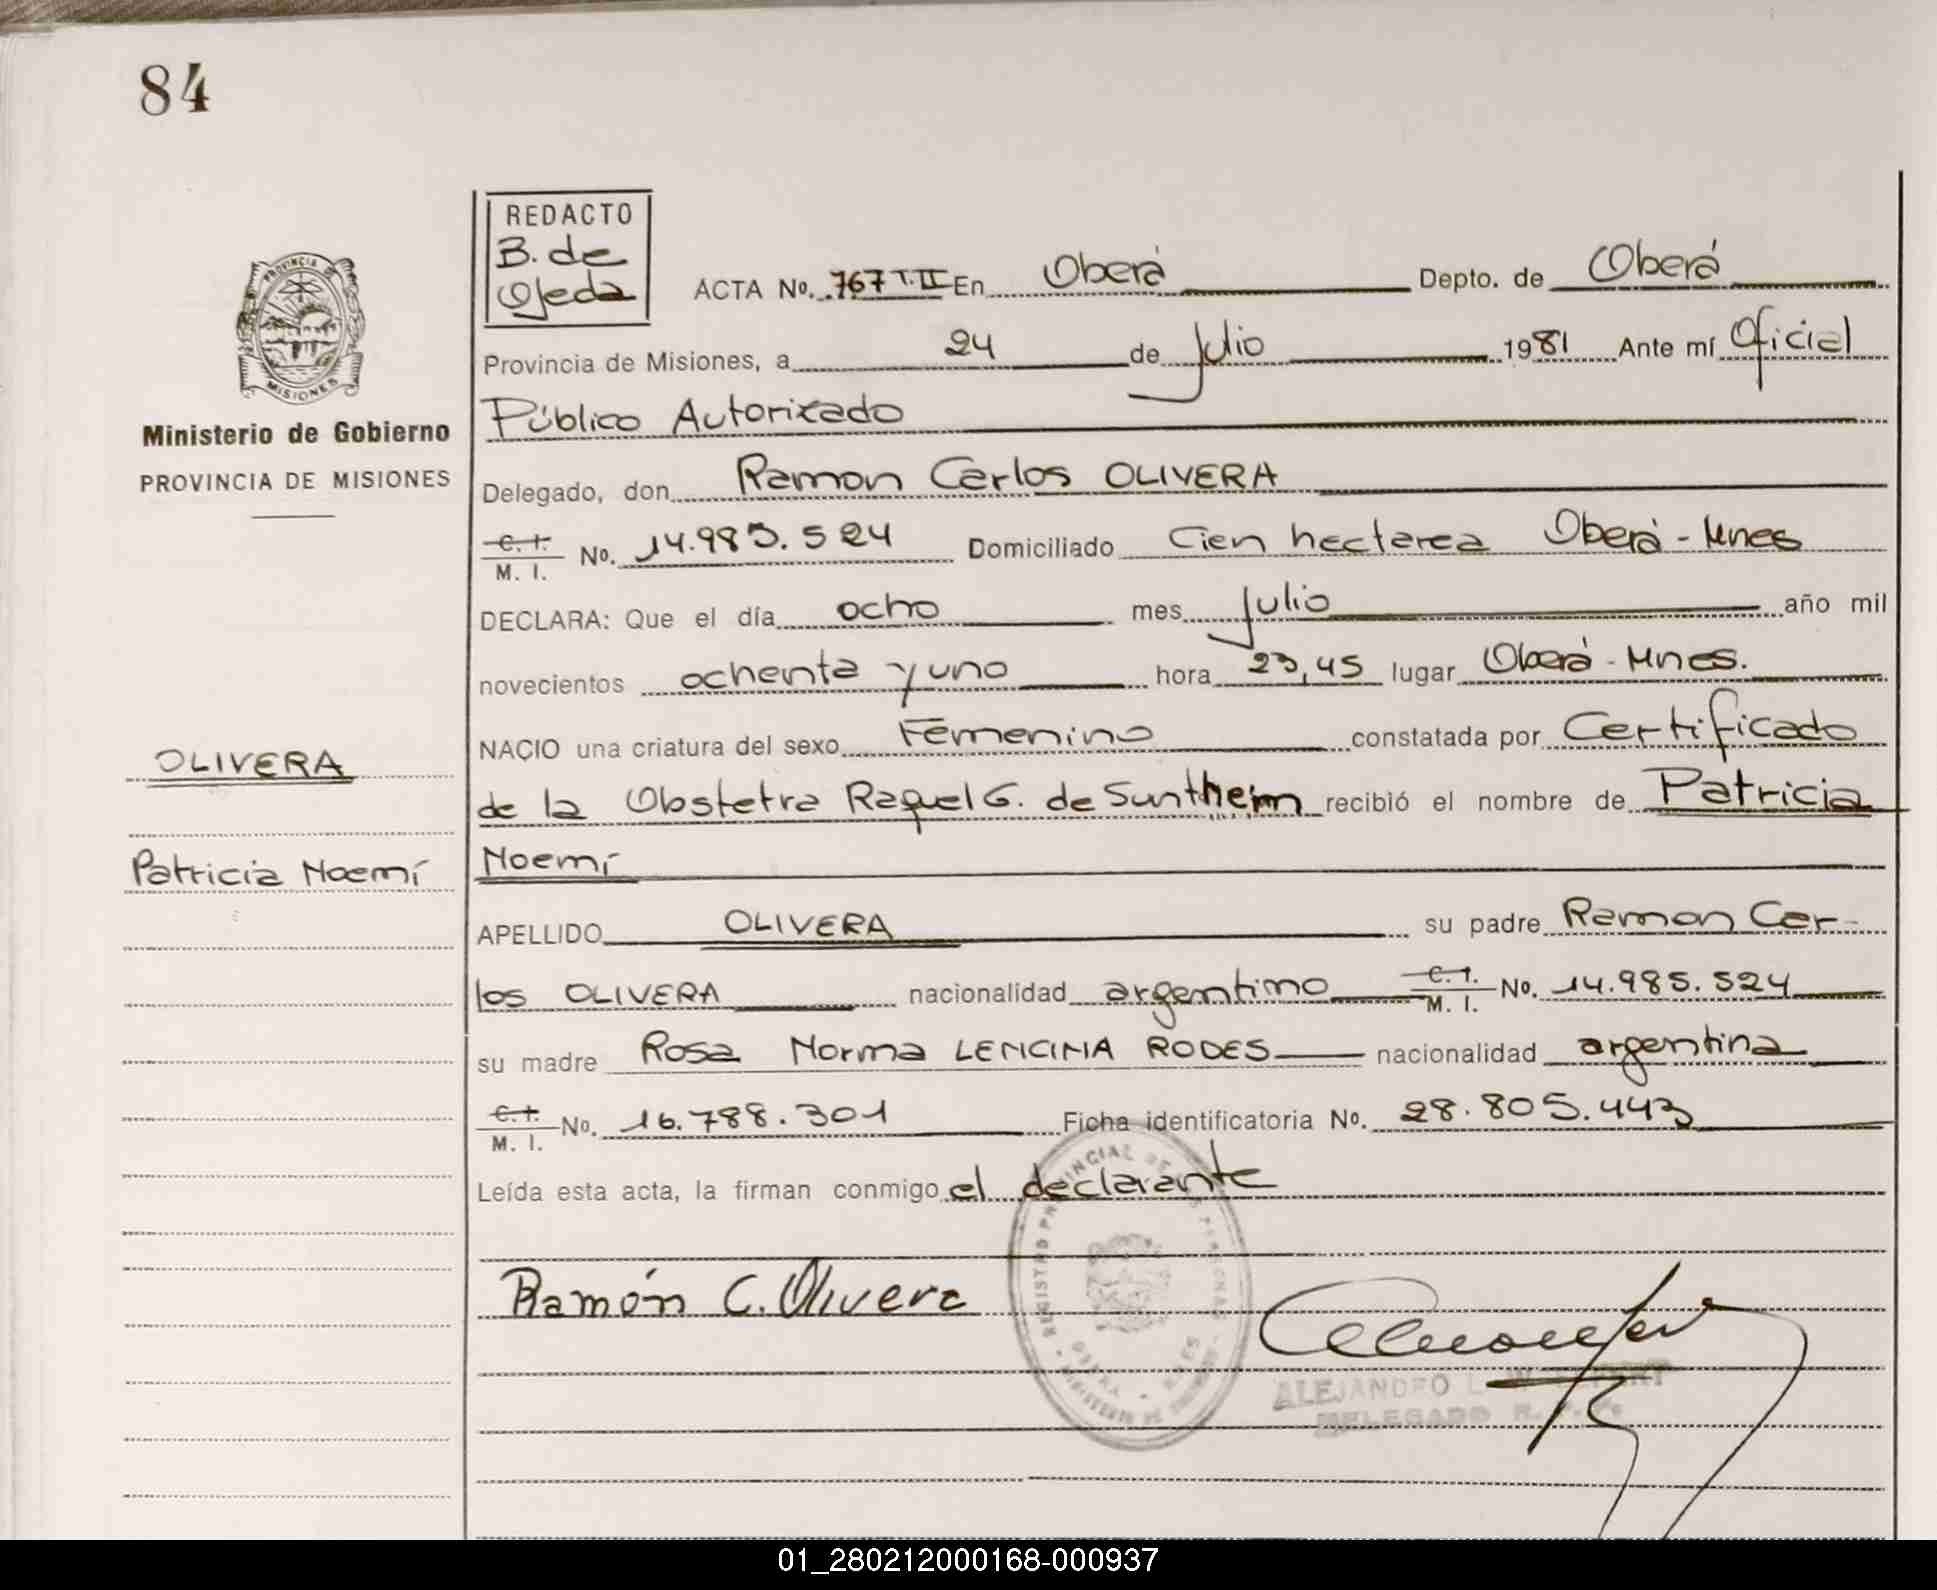 84
REDACTO
B. de
Ojeda
ACTA No. 767 T.II En Oberá Depto. de Oberá
Provincia de Misiones, a 24 de Julio 1981 Ante mí Oficial
Público Autorizado
Ministerio de Gobierno
PROVINCIA DE MISIONES
Delegado, don Ramon Carlos OLIVERA
C. I.
M. I. No. 14.985.524 Domiciliado Cien hectarea Oberá - Mnes
DECLARA: Que el día ocho mes Julio año mil
novecientos ochenta y uno hora 23,45 lugar Oberá - Mnes.
NACIO una criatura del sexo Femenino constatada por Certificado
OLIVERA
de la Obstetra Raquel G. de Suntheim recibió el nombre de Patricia
Patricia Noemí
Noemí
APELLIDO OLIVERA su padre Ramon Car-
los OLIVERA nacionalidad argentino C. I.
M. I. No. 14.985.524
su madre Rosa Norma LENCINA RODES nacionalidad argentina
C. I.
M. I. No. 16.788.301 Ficha identificatoria No. 28.805.443
Leída esta acta, la firman conmigo el declarante
Ramón C. Olivera
ALEJANDRO L.
DELEGADO R. P. P.
01_280212000168-000937